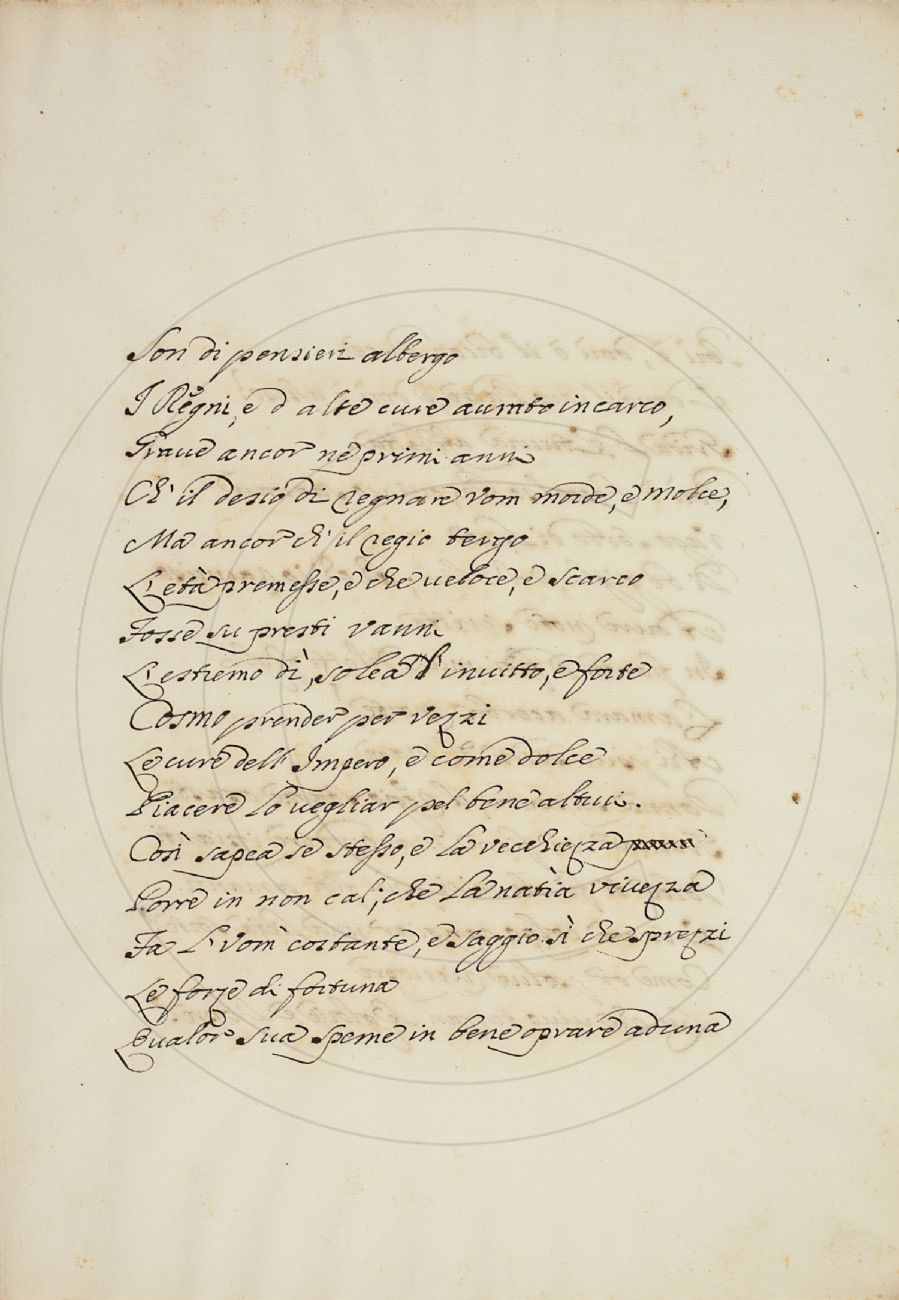 Son di pensieri albergo
I Regni, e d alte cure aurato incarco,
Graue ancor ne primi anni
Ch' il desio di regnare vom morde, e molce;
Ma ancor ch' il regio tergo
L' età premesse, e che ueloce, e scarco
Fosse su presti vanni
L' estremo dì, solea l' inuitto, e forte
Cosmo prender per vezzi
Le cure dell' Impero, e come dolce
Piacere lo uegliar pel bene altrui.
Così sapea se stesso, e la vecchiezza
Porre in non cal; che la natìa viuezza
Fa l' vom costante, e saggio sì che sprezzi
Le forze di fortuna
Qualor sua speme in bene oprare aduna